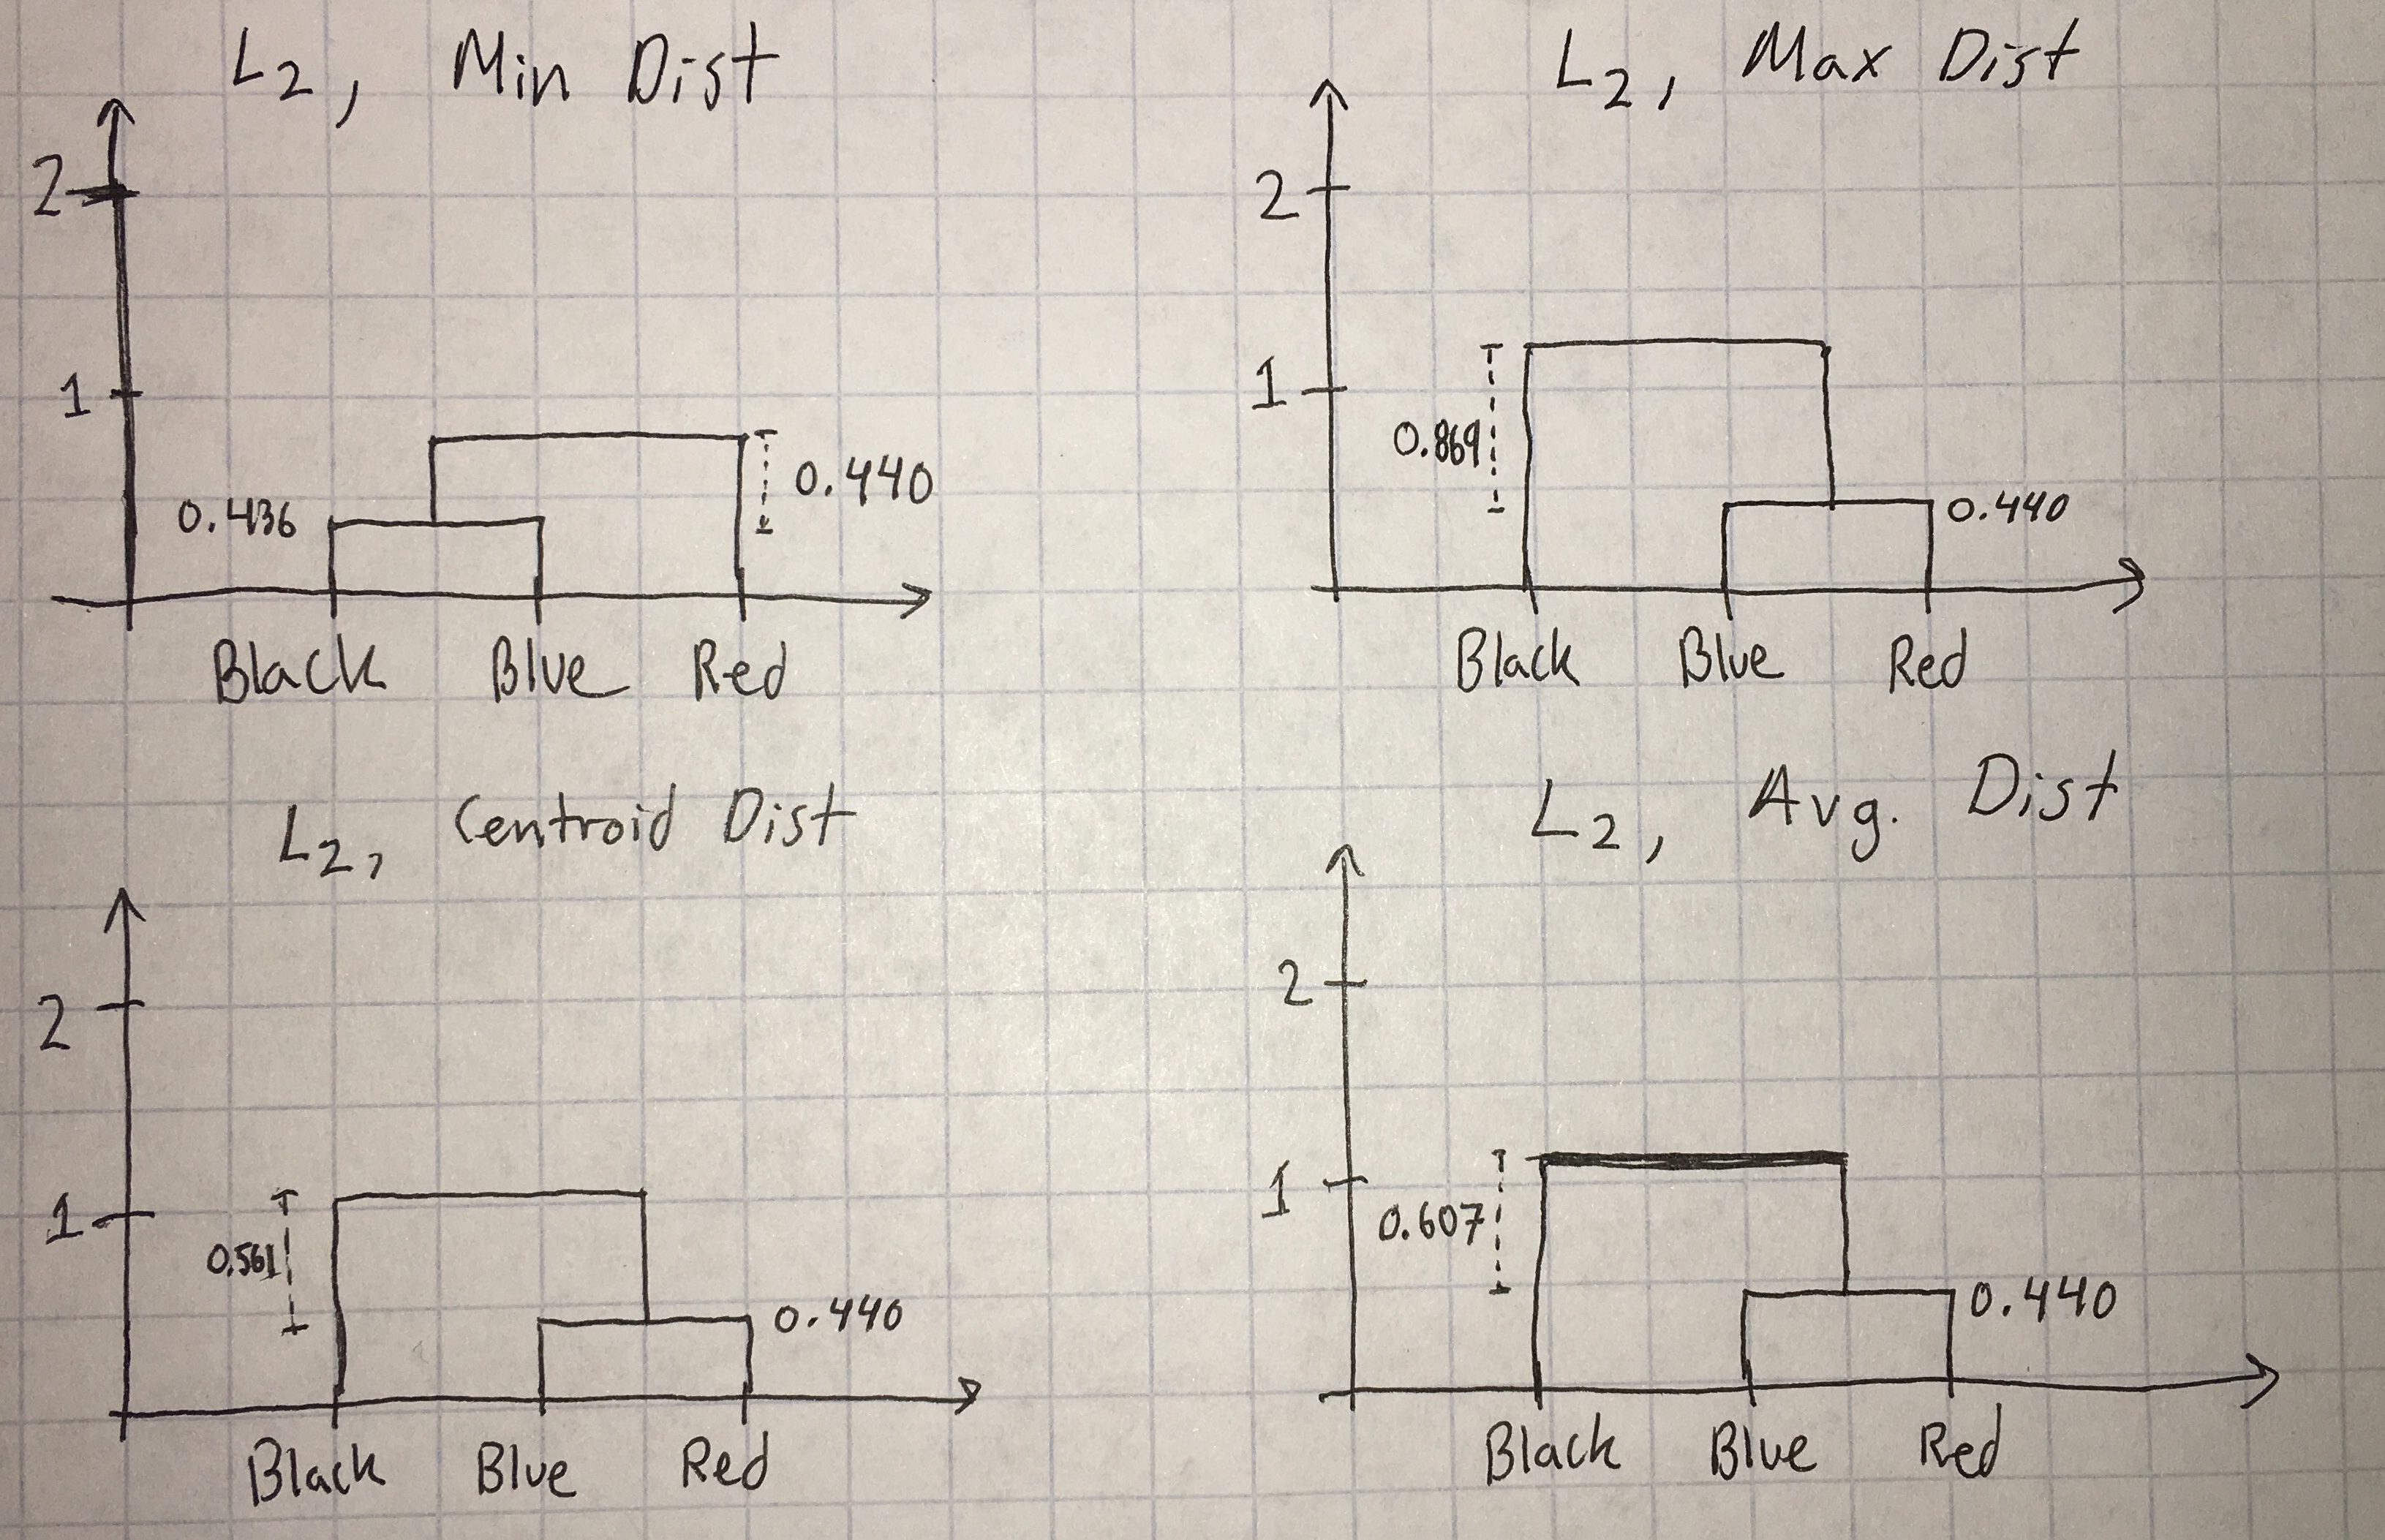 L2, Min Dist
2
1
0.436
0.440
Black Blue Red
L2, Max Dist
2
1
0.869
0.440
Black Blue Red
L2, Centroid Dist
2
1
0.561
0.440
Black Blue Red
L2, Avg. Dist
2
1
0.607
0.440
Black Blue Red